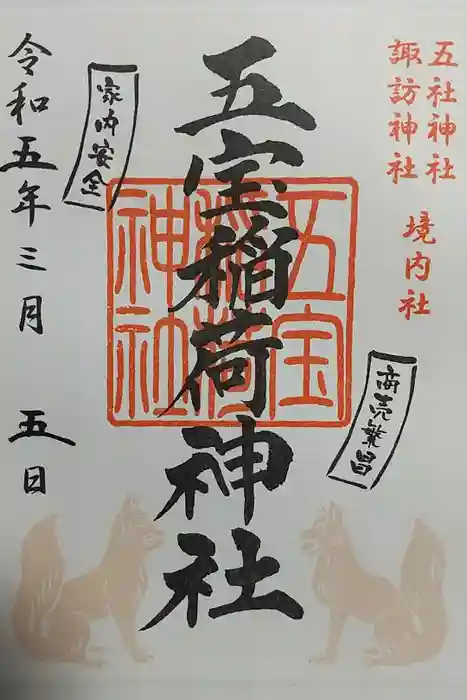 五社神社
諏訪神社
境内社
商売繁昌
五宝稲荷神社
五宝稲荷神社
家内安全
令和五年三月五日